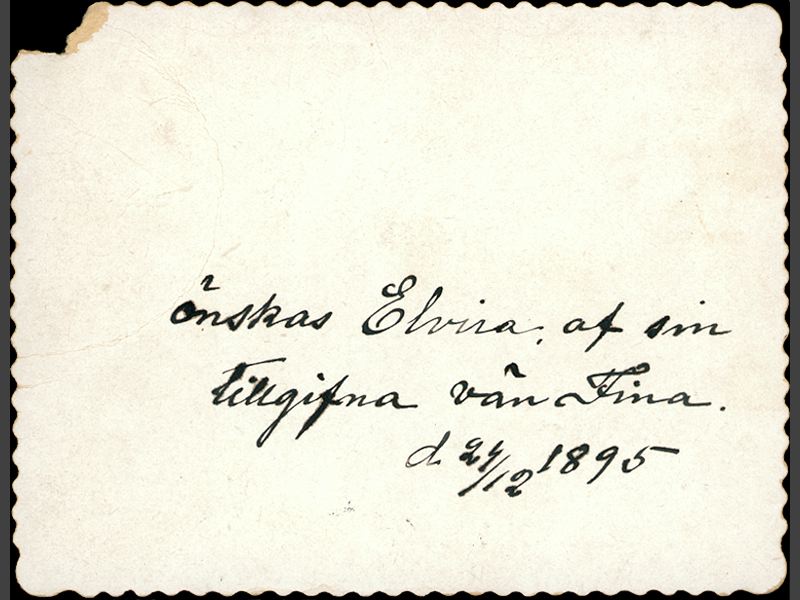 önskas Elvira, af sin
tillgifna vän Fina.
d 24/12 1895